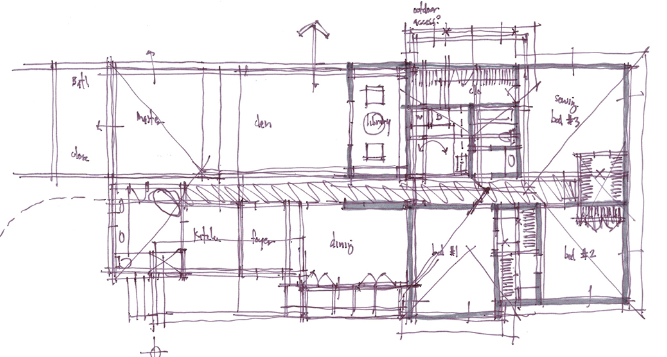 outdoor
access?
clo
Bath
Master
den
library
W
D
sewing
bed #3
close
Kitchen
foyer
dining
bed #1
bed #2